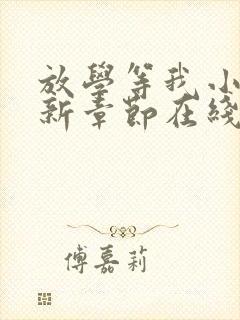 放學等我小
新章節在綫
傅嘉莉